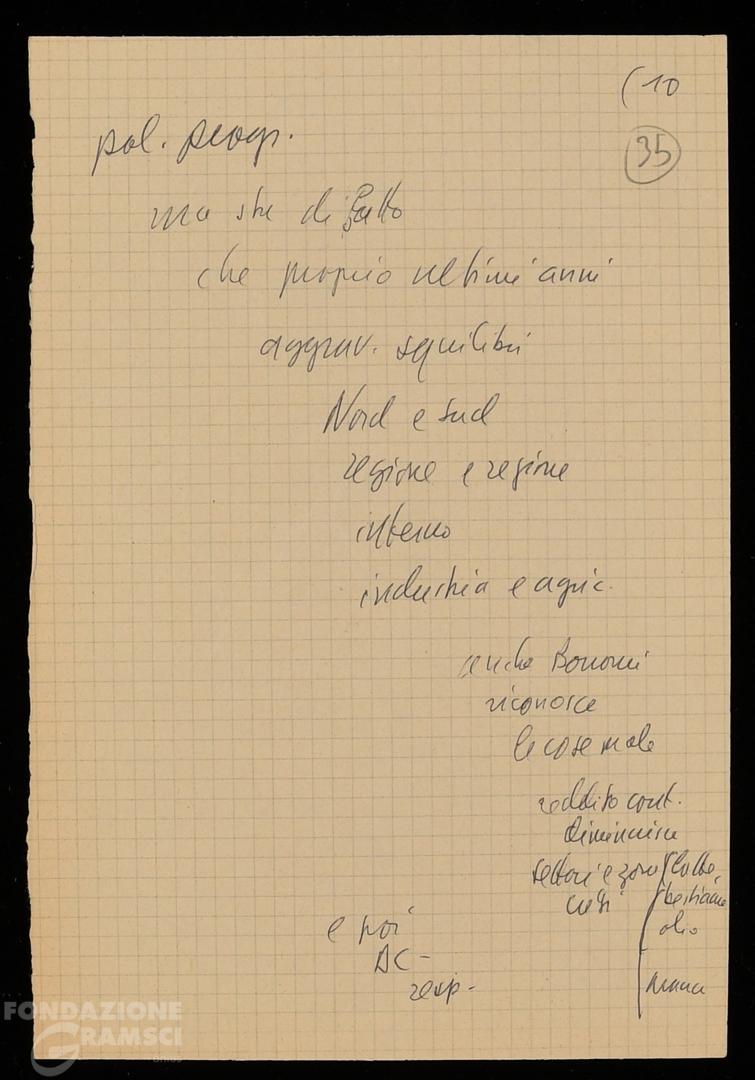 (10
35
pol. progr.
ma sta di fatto
che proprio ultimi anni
aggrav. squilibri
Nord e Sud
regione e regione
interno
industria e agric.
anche Bonomi
riconosce
le cose male
reddito cont.
diminuire
settori e zone
crisi
latte,
bestiame
olio
e poi
DC -
resp -
FONDAZIONE
GRAMSCI